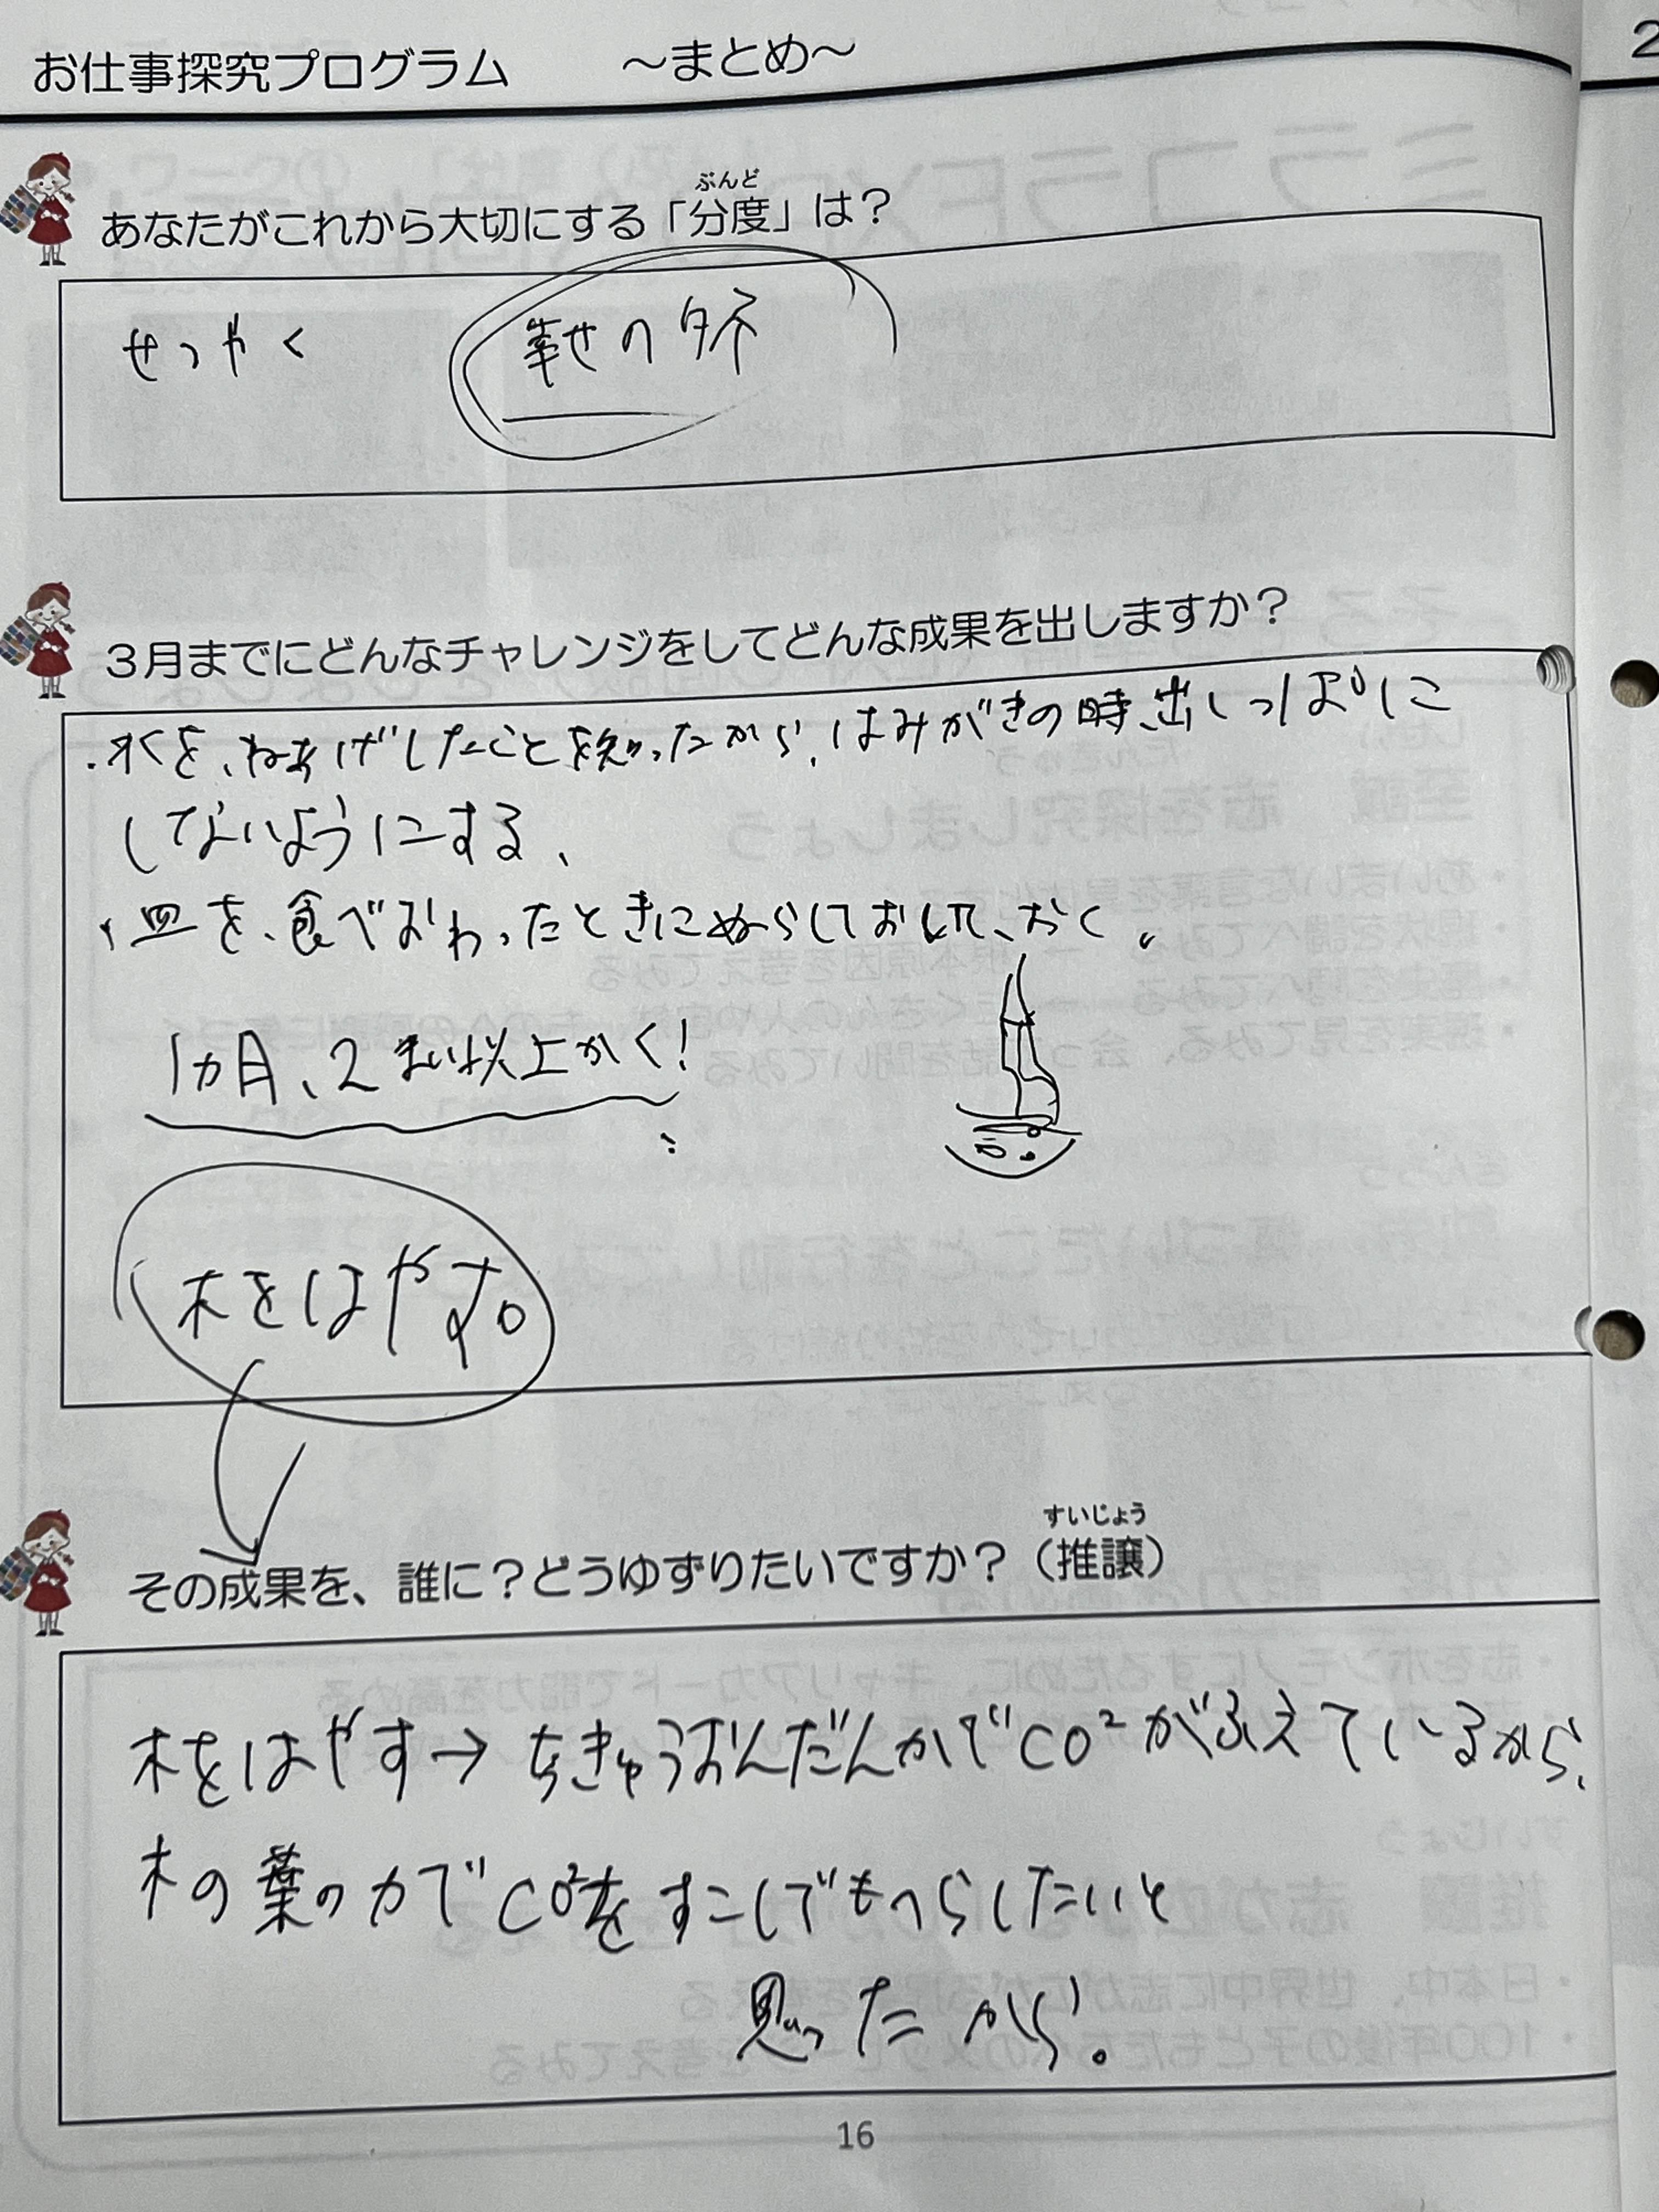 お仕事探究プログラム　～まとめ～
2
ぶんど
あなたがこれから大切にする「分度」は？
せつやく　幸せの
3月までにどんなチャレンジをしてどんな成果を出しますか？
・水を、ねあげしたことを知ったから、はみがきの時、出しっぱに
してないようにする、
・皿を、食べおわったときにぬらしておして、おく。
1カ月、2まい以上かく！
木をはやす。
すいじょう
その成果を、誰に？どうゆずりたいですか？（推譲）
木をはやす→ちきゅうおんだんかでCO²がふえているから、
木の葉の力でCO²をすこしでもへらしたいと
思ったから。
16